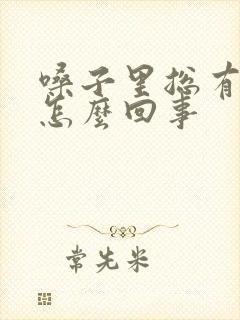 嗓子里总有
怎麼回事
常先米